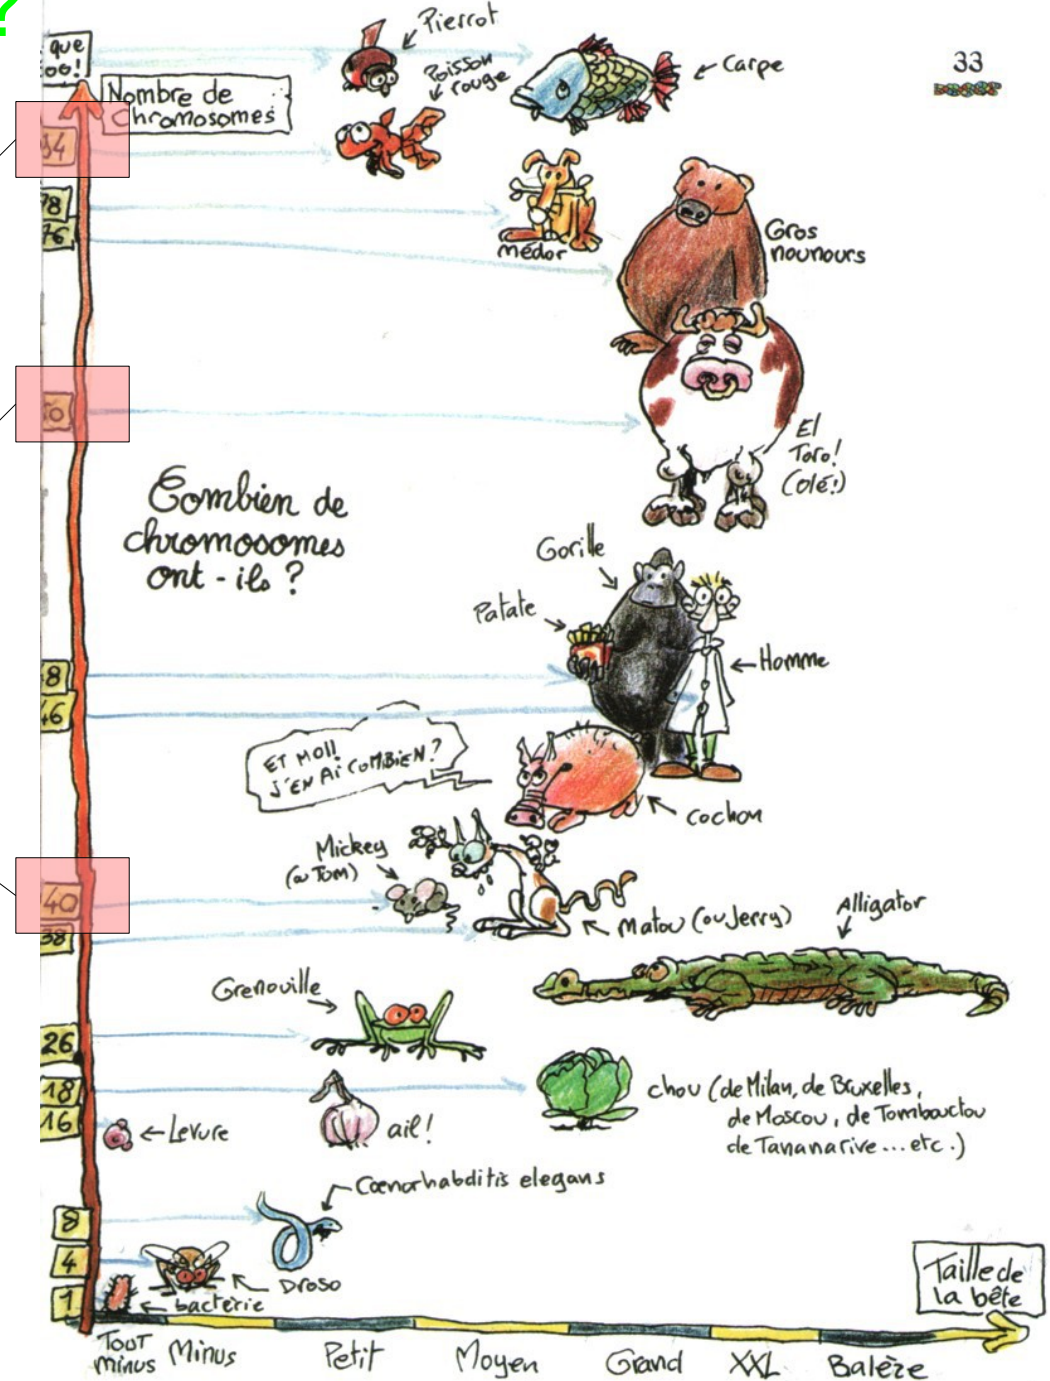 ?
que
oo!
Nombre de
Chromosomes
Pierrot
Poisson
rouge
Carpe
33
84
78
76
Médor
Gros
nounours
60
El
Toro!
(Olé!)
Combien de
chromosomes
ont-ils ?
Gorille
Patate
Homme
8
46
ET MOI!
J'EN AI COMBIEN?
cochon
Mickey
(ou Tom)
40
38
Matou (ou Jerry)
Alligator
Grenouille
26
18
16
Levure
ail!
chou (de Milan, de Bruxelles,
de Moscou, de Tombouctou
de Tananarive...etc.)
Cænorhabditis elegans
8
4
1
Droso
bactérie
Taille de
la bête
Tout
minus
Minus
Petit
Moyen
Grand
XXL
Balèze